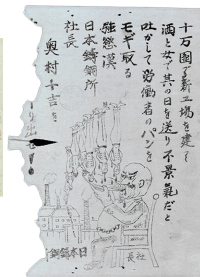 十万圓で新工場を建て
酒と女で其の日を送り不景氣だと
吐かして労働者のパンを
モギ取る
強慾漢
日本鋳鋼所
社長
奥村
吉を
日本鋳鋼
社長